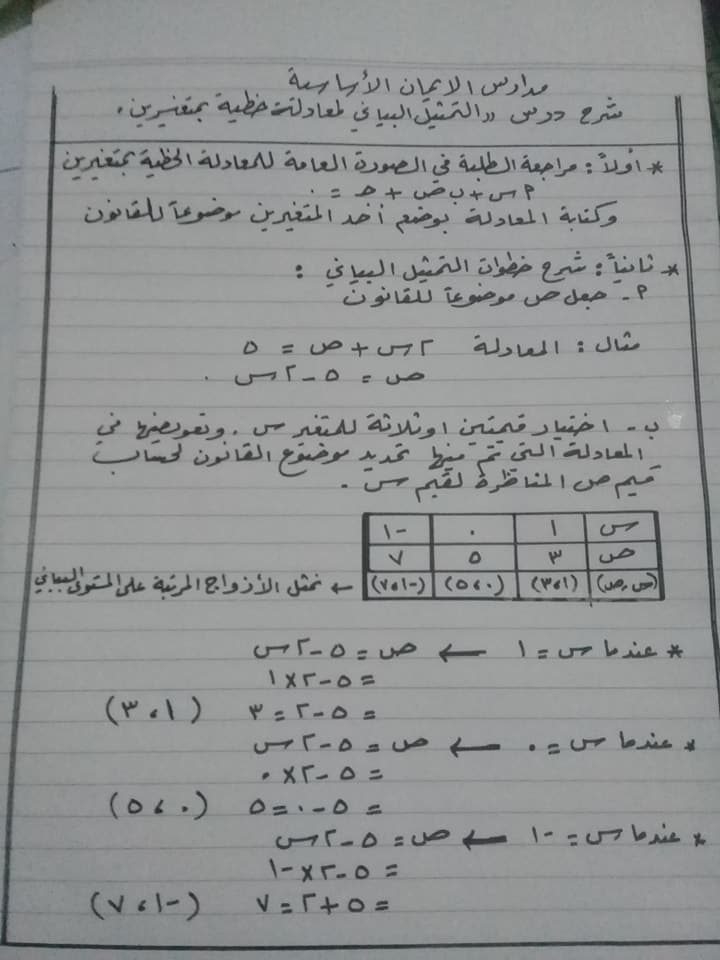 مدارس الإيمان الأساسية
شرح درس " التمثيل البياني لمعادلة خطية بمتغيرين "
* أولاً : مراجعة الطلبة في الصورة العامة للمعادلة الخطية بمتغيرين
أس + ب ص + جـ = ٠
وكتابة المعادلة بوضع أحد المتغيرين موضوعاً للقانون
* ثانياً : شرح خطوات التمثيل البياني :
أ - جعل ص موضوعاً للقانون
مثال : المعادلة ٢س + ص = ٥
ص = ٥ - ٢س .
ب - اختيار قيمتين او ثلاثة للمتغير س . وتعويضها في
المعادلة التي تم منها تحديد موضوع القانون لحساب
قيم ص المناظرة لقيم س .
س ١ ٠ -١
ص ٣ ٥ ٧
(س،ص) (١،٣) (٠،٥) (-١،٧) ← نمثل الأزواج المرتبة على المستوى البياني
* عندما س = ١ ← ص = ٥ - ٢س
= ٥ - ٢×١
= ٥ - ٢ = ٣ (١،٣)
* عندما س = ٠ ← ص = ٥ - ٢س
= ٥ - ٢×٠
= ٥ - ٠ = ٥ (٠،٥)
* عندما س = -١ ← ص = ٥ - ٢س
= ٥ - ٢×-١
= ٥ + ٢ = ٧ (-١،٧)